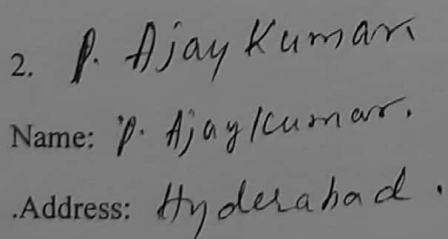 2. P. Ajay Kumar
Name: P. Ajay Kumar.
.Address: Hyderabad.